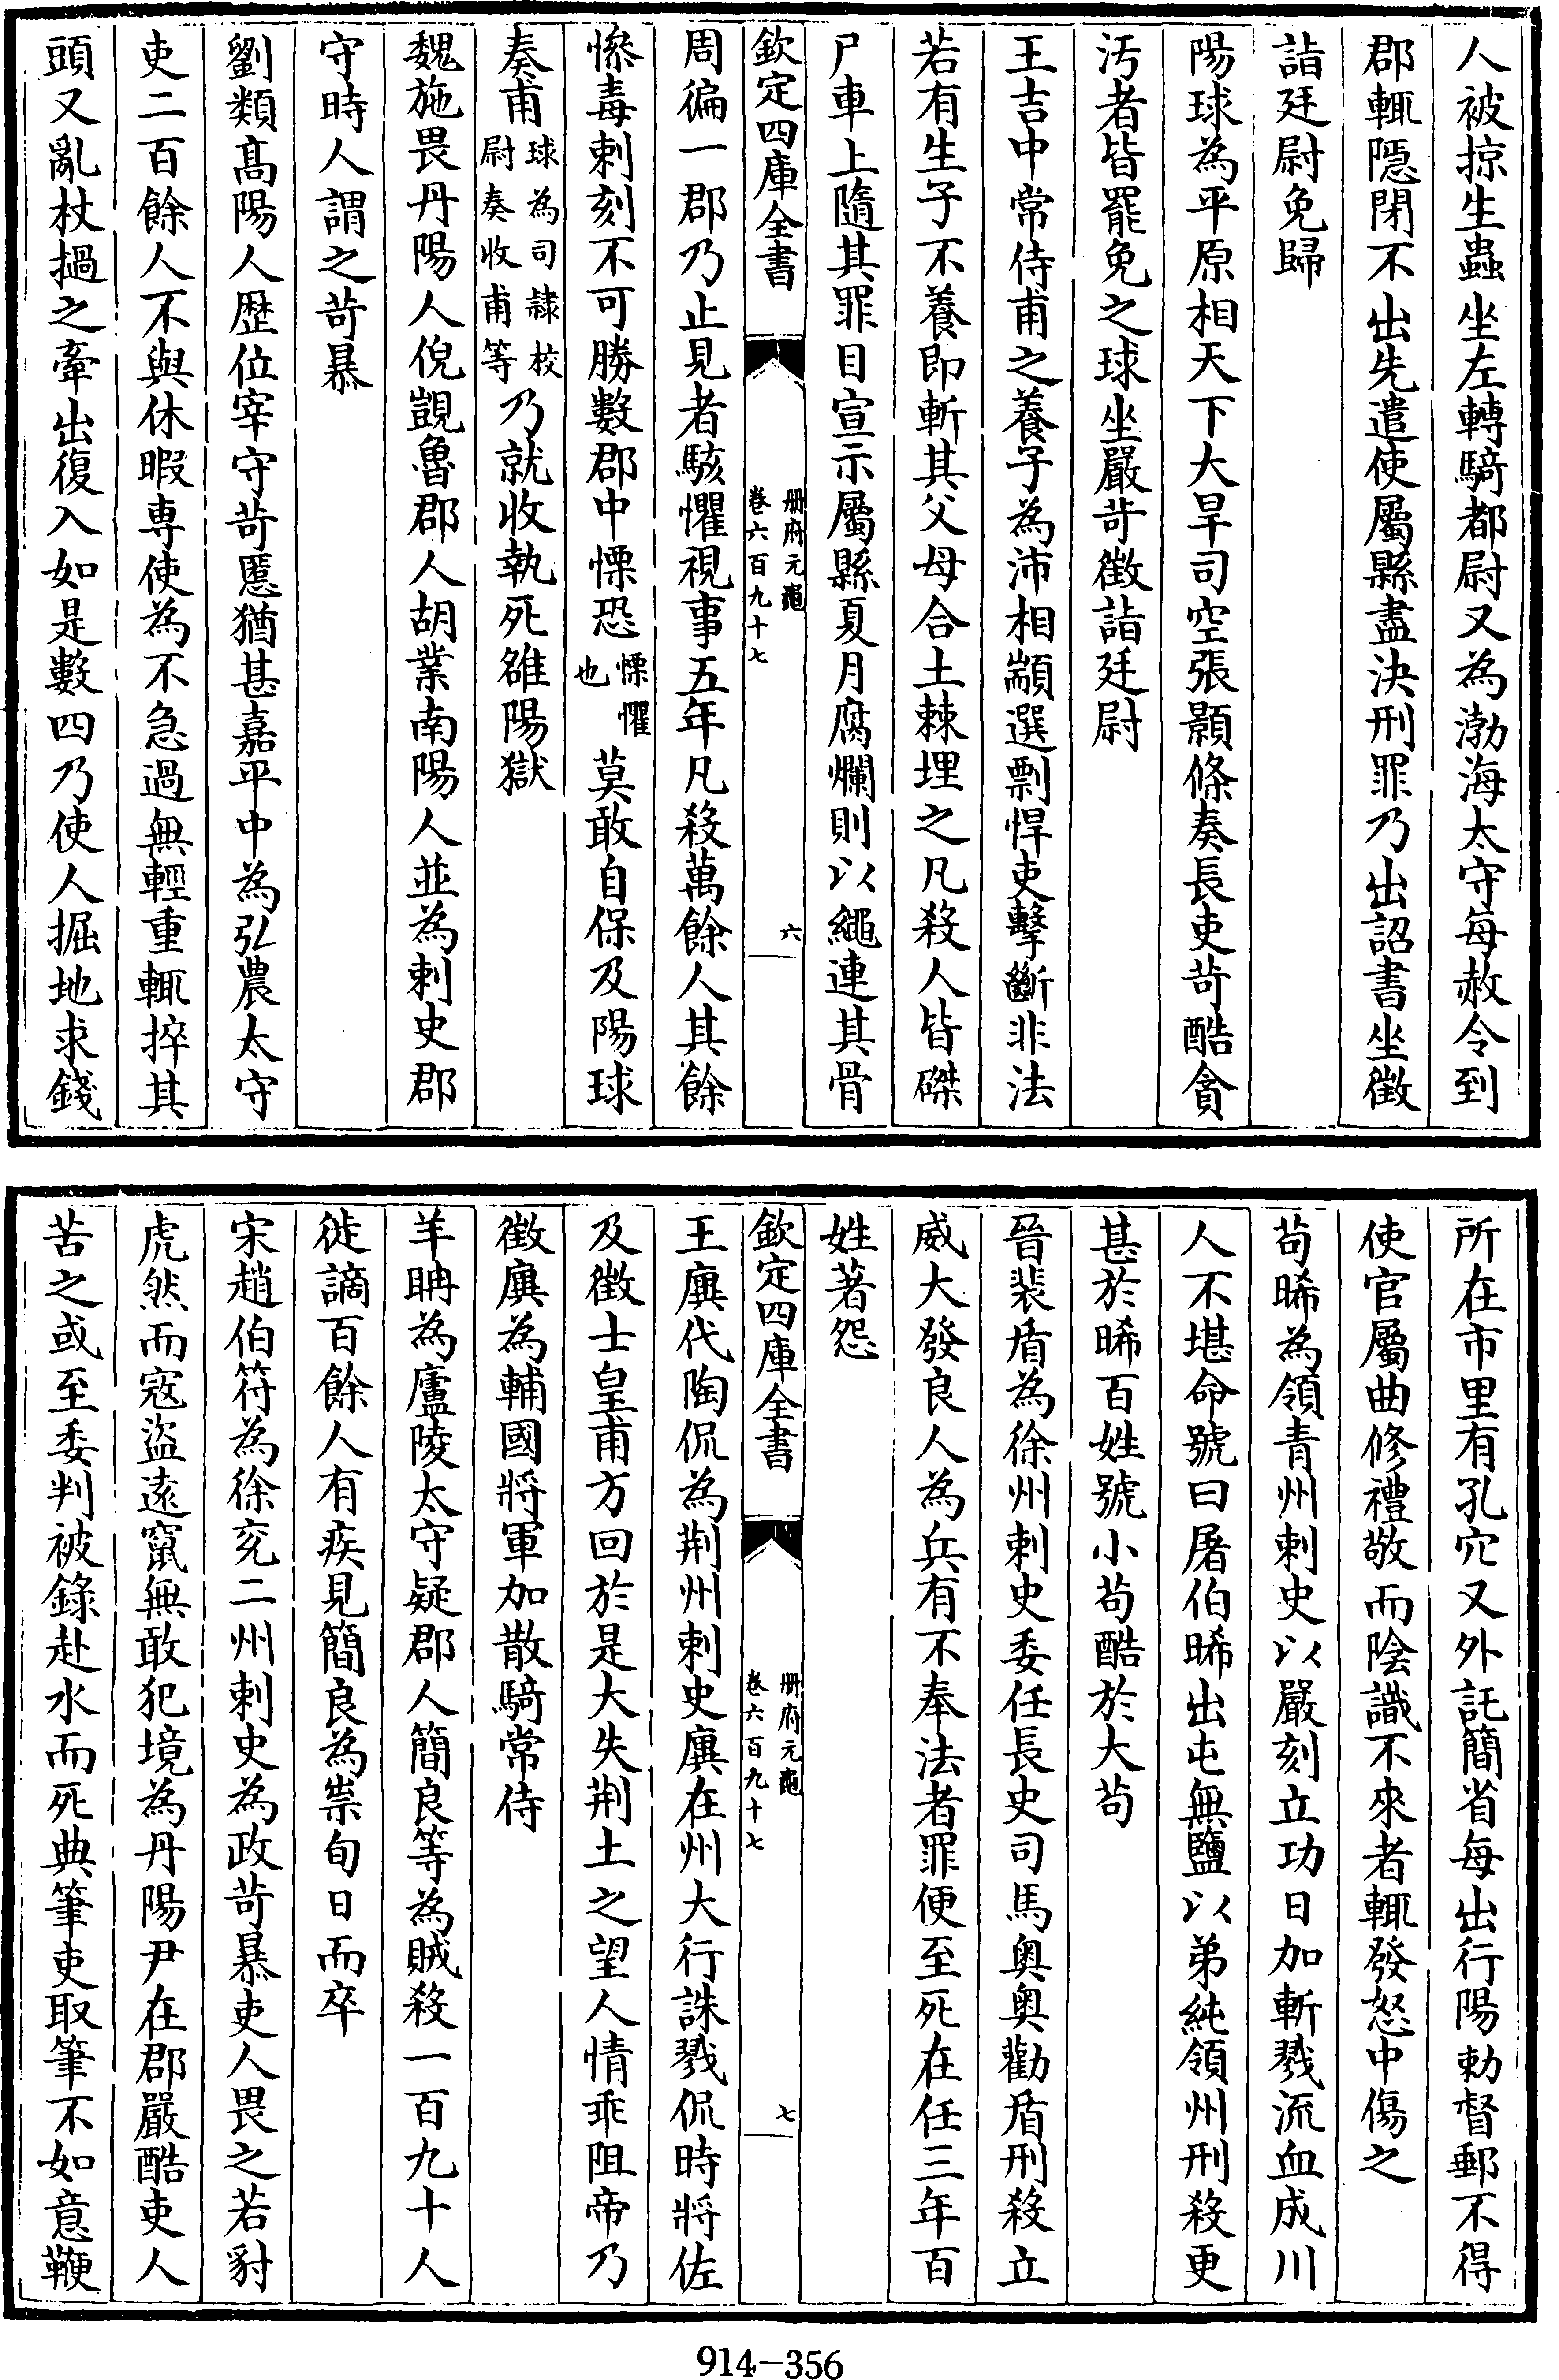 人被掠生蟲坐左轉騎都尉又為渤海太守每赦令到
郡輒隱閉不出先遣使屬縣盡決刑罪乃出詔書坐徵
詣廷尉免歸
陽球為平原相天下大旱司空張顥條奏長吏苛酷貪
汚者皆罷免之球坐嚴苛徵詣廷尉
王吉中常侍甫之養子為沛相顓選剽悍吏擊斷非法
若有生子不養即斬其父母合土棘埋之凡殺人皆磔
尸車上隨其罪目宣示屬縣夏月腐爛則以繩連其骨
欽定四庫全書 冊府元龜 卷六百九十七 六
周徧一郡乃止見者駭懼視事五年凡殺萬餘人其餘
慘毒刺刻不可勝數郡中慄恐慄懼也莫敢自保及陽球
奏甫球為司隸校尉奏收甫等乃就收執死雒陽獄
魏施畏丹陽人倪覬魯郡人胡業南陽人並為刺史郡
守時人謂之苛暴
劉類高陽人歴位宰守苛慝猶甚嘉平中為弘農太守
吏二百餘人不與休暇專使為不急過無輕重輒捽其
頭又亂杖撾之牽出復入如是數四乃使人掘地求錢
所在市里有孔穴又外託簡省每出行陽勅督郵不得
使官屬曲修禮敬而陰識不來者輒發怒中傷之
苟晞為領青州刺史以嚴刻立功日加斬戮流血成川
人不堪命號曰屠伯晞出屯無鹽以弟純領州刑殺更
甚於晞百姓號小苟酷於大苟
晉裴盾為徐州刺史委任長史司馬奥奥勸盾刑殺立
威大發良人為兵有不奉法者罪便至死在任三年百
姓著怨
欽定四庫全書 冊府元龜 卷六百九十七 七
王廙代陶侃為荆州刺史廙在州大行誅戮侃時將佐
及徵士皇甫方回於是大失荆土之望人情乖阻帝乃
徵廙為輔國將軍加散騎常侍
羊聃為廬陵太守疑郡人簡良等為賊殺一百九十人
徙謫百餘人有疾見簡良為祟旬日而卒
宋趙伯符為徐兖二州刺史為政苛暴吏人畏之若豺
虎然而寇盜遠竄無敢犯境為丹陽尹在郡嚴酷吏人
苦之或至委判被錄赴水而死典筆吏取筆不如意鞭
914-356